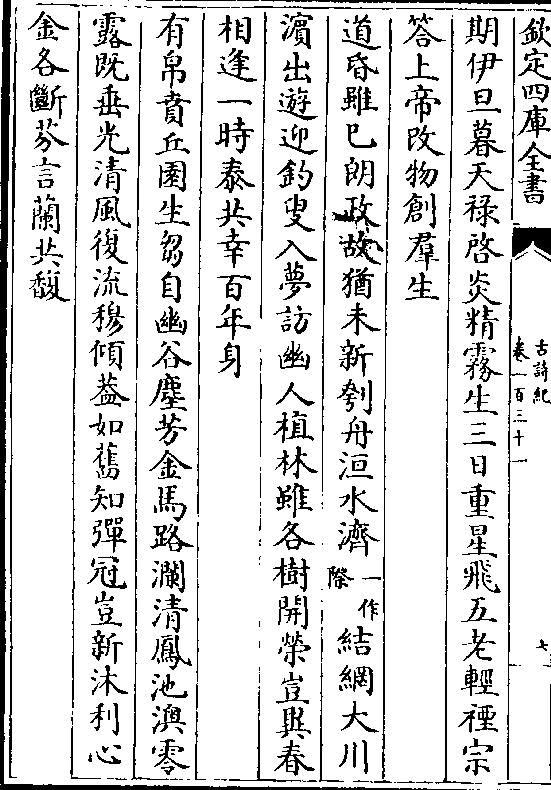 欽定四庫全書
古詩紀
卷一百三十一
七
期伊旦暮天禄啓炎精霧生三日重星飛五老輕禋宗
答上帝改物創羣生
道昏雖已朗政故猶未新刳舟洹水濟一作際結網大川
濵出遊迎釣叟入夢訪幽人植林雖各樹開榮豈異春
相逢一時泰共幸百年身
有帛賁丘園生芻自幽谷塵芳金馬路瀾清鳳池澳零
露既垂光清風復流穆傾葢如舊知彈冠豈新沐利心
金各斷芬言蘭共馥